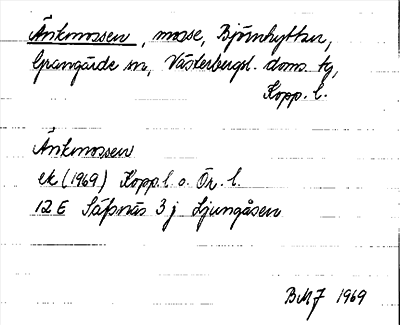 Änkmossen, mosse, Björnhyttan,
Grangärde sn, Västerbergsl. doms. tg,
Kopp. l.
Änkmossen
ek (1969) Kopp. l. o. Ör. l.
12 E Säfsnäs 3 j Ljungåsen
BMJ 1969